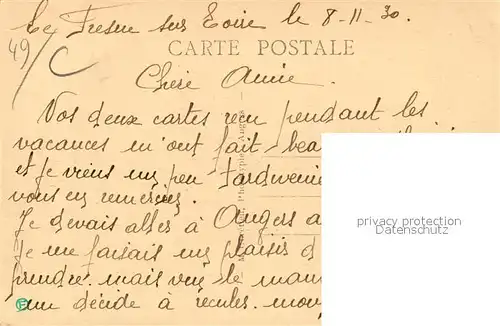 Le Fresne sur Loire le 8-11-30.
49/C
CARTE POSTALE
Chère Amie.
Vos deux cartes reçu pendant les
vacances m'ont fait beau
et je viens un peu tardivement
vous en remercier.
privacy protection
Datenschutz
Je devais aller à Angers a
Je me faisais un plaisir d
prendre. mais voy le mau
me décide à reculer. mon